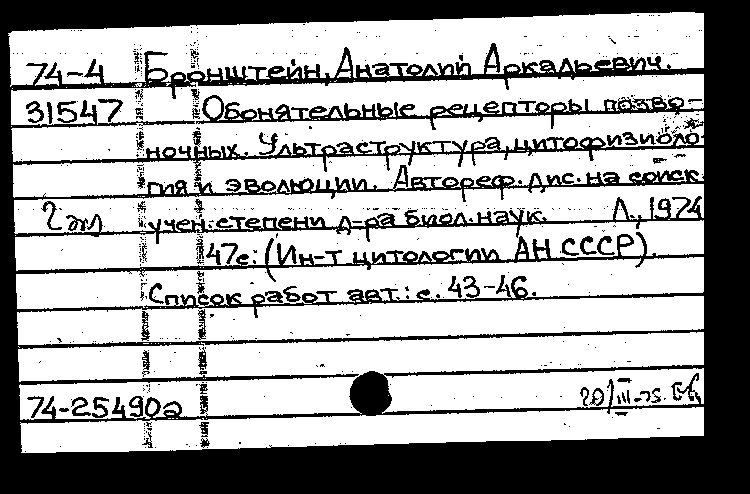 74-4 Бронштейн, Анатолий Аркадьевич.
31547 Обонятельные рецепторы позво-
ночных. Ультраструктура, цитофизиоло-
гия и эволюции. Автореф. дис. на соиск.
2 эк учен. степени д-ра биол. наук. Л., 1974
47с. (Ин-т цитологии АН СССР).
Список работ авт.: с. 43-46.
74-25490а 20/III-75